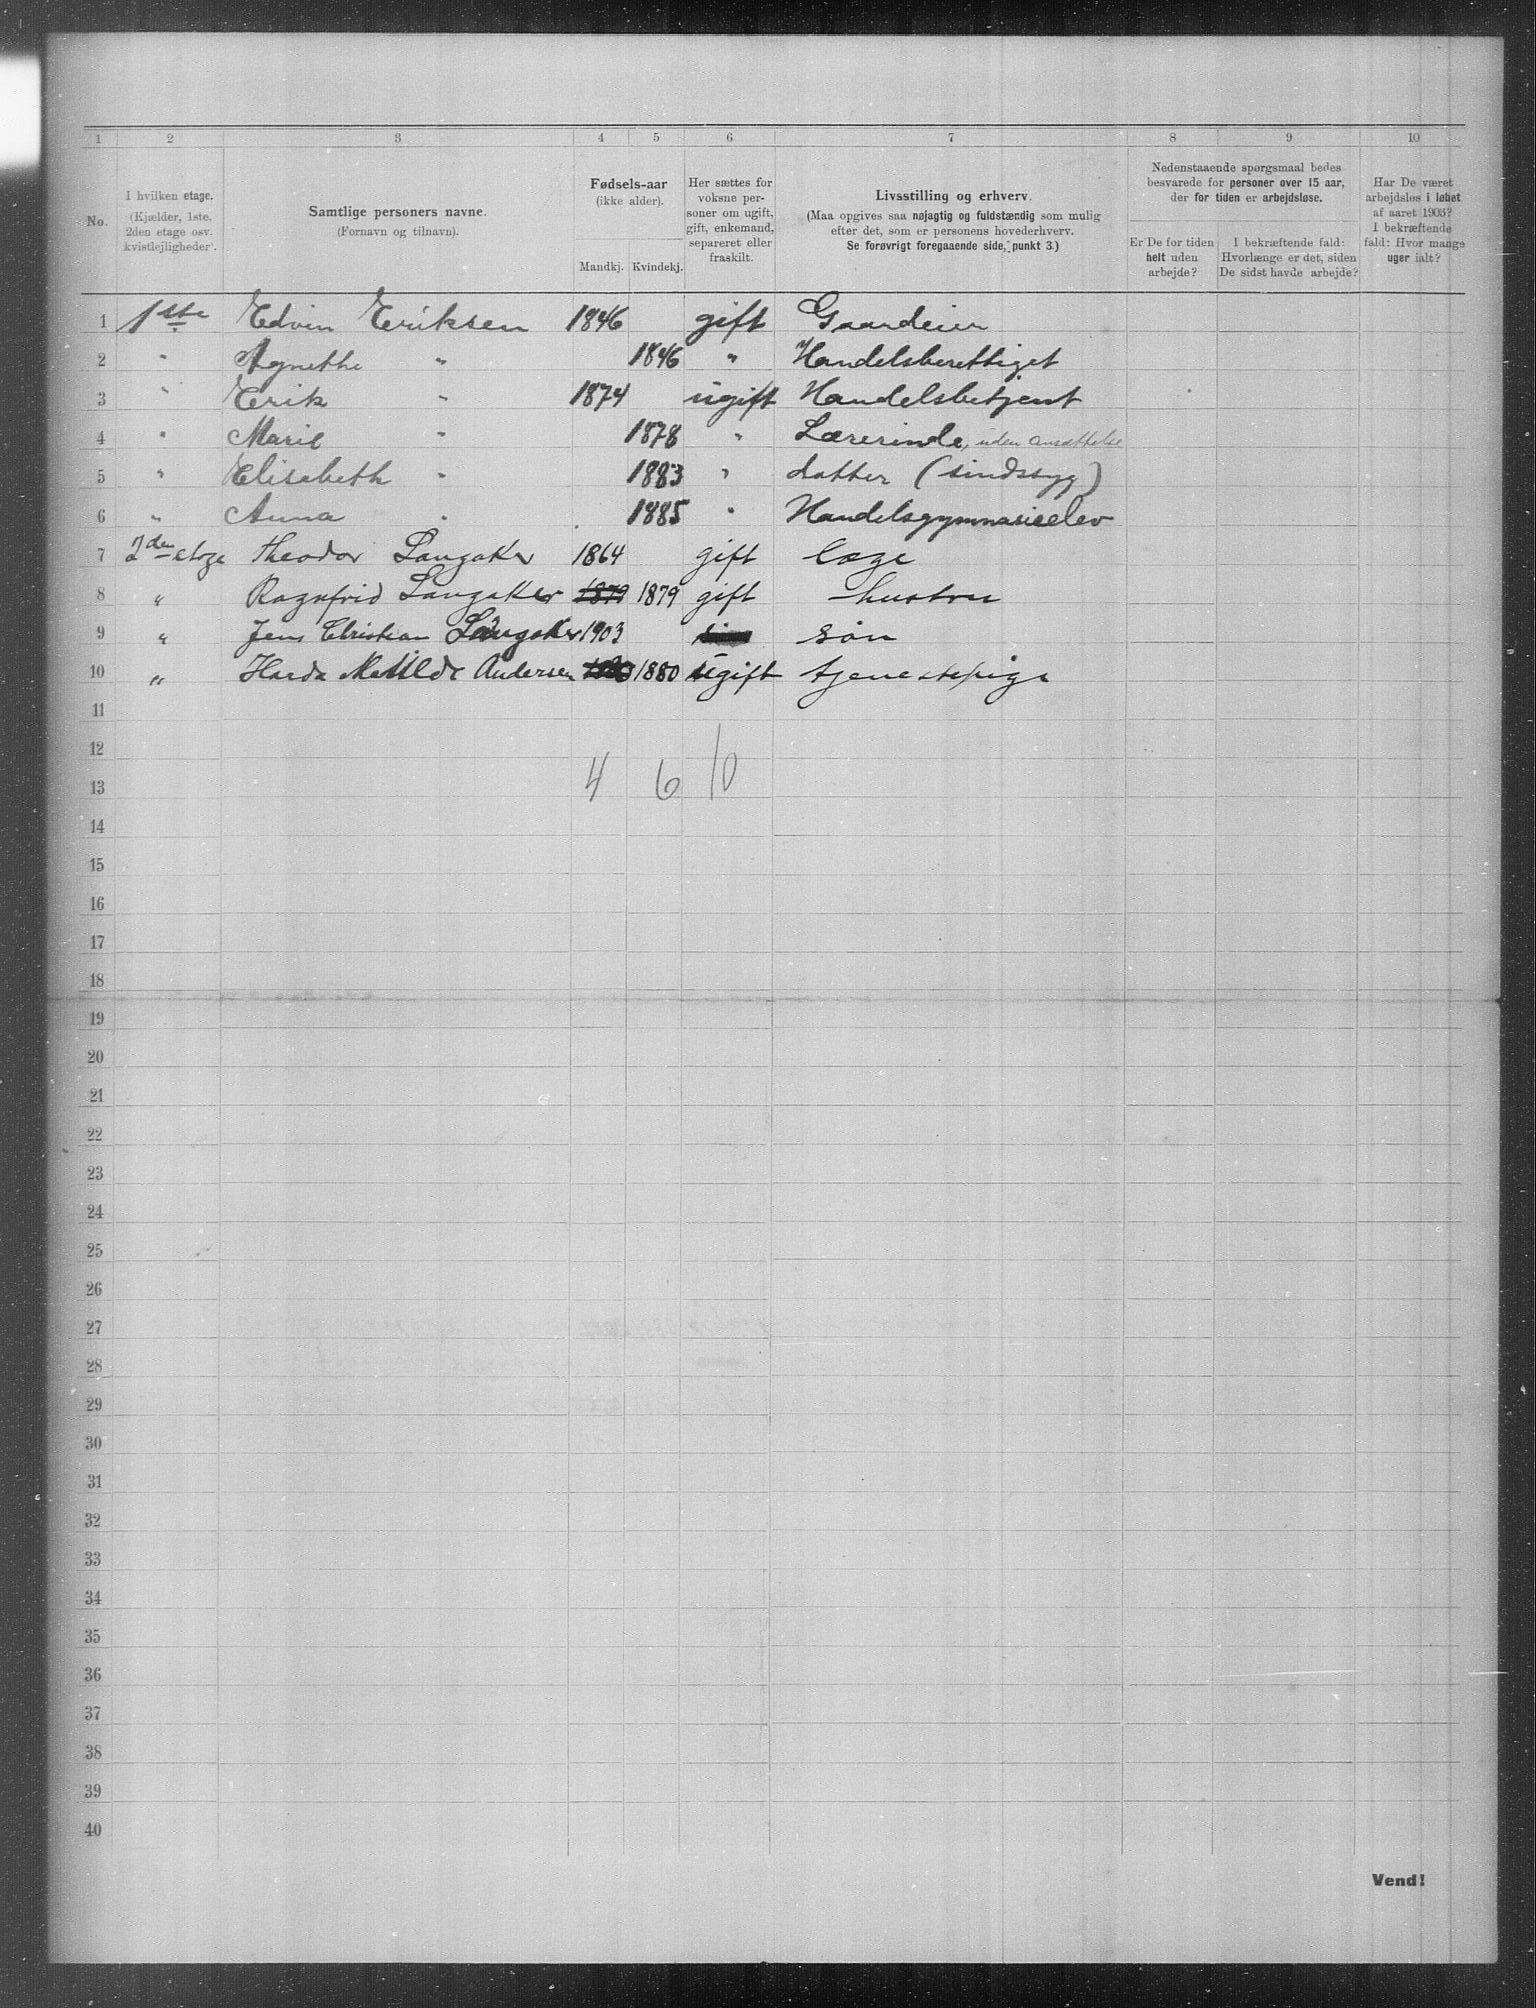 1 2 3 4 5 6 7 8 9 10
No.
I hvilken etage.
(Kjælder, 1ste,
2den etage osv.
kvistlejligheder).
Samtlige personers navne.
(Fornavn og tilnavn).
Fødsels-aar
(ikke alder).
Mandkj. Kvindekj.
Her sættes for
voksne per-
soner om ugift,
gift, enkemand,
separeret eller
fraskilt.
Livsstilling og erhverv.
(Maa opgives saa nøjagtig og fuldstændig som mulig
efter det, som er personens hovederhverv.
Se forøvrigt foregaaende side, punkt 3.)
Nedenstaaende spørgsmaal bedes
besvarede for personer over 15 aar,
der for tiden er arbejdsløse.
Er De for tiden
helt uden
arbejde?
I bekræftende fald:
Hvorlænge er det, siden
De sidst havde arbejde?
Har De været
arbejdsløs i løbet
af aaret 1903?
I bekræftende
fald: Hvor mange
uger ialt?
1 1ste Edvin Eriksen 1846 gift Gaardeier
2 " Agnethe " 1846 " Handelsberettiget
3 " Erik " 1874 ugift Handelsbetjent
4 " Marie " 1878 " Lærerinde, uden ansættelse
5 " Elisabeth " 1883 " datter (sindssyg)
6 " Anna " 1885 " Handelsgymnasieelev
7 2den etage Theodor Langaker 1864 gift læge
8 " Ragnfrid Langaker 1879 1879 gift hustru
9 " Jens Christian Langaker 1903 søn
10 " Harda Matilde Andersen 1880 ugift tjenestepige
11
12
13 4 6 10
14
15
16
17
18
19
20
21
22
23
24
25
26
27
28
29
30
31
32
33
34
35
36
37
38
39
40
Vend!